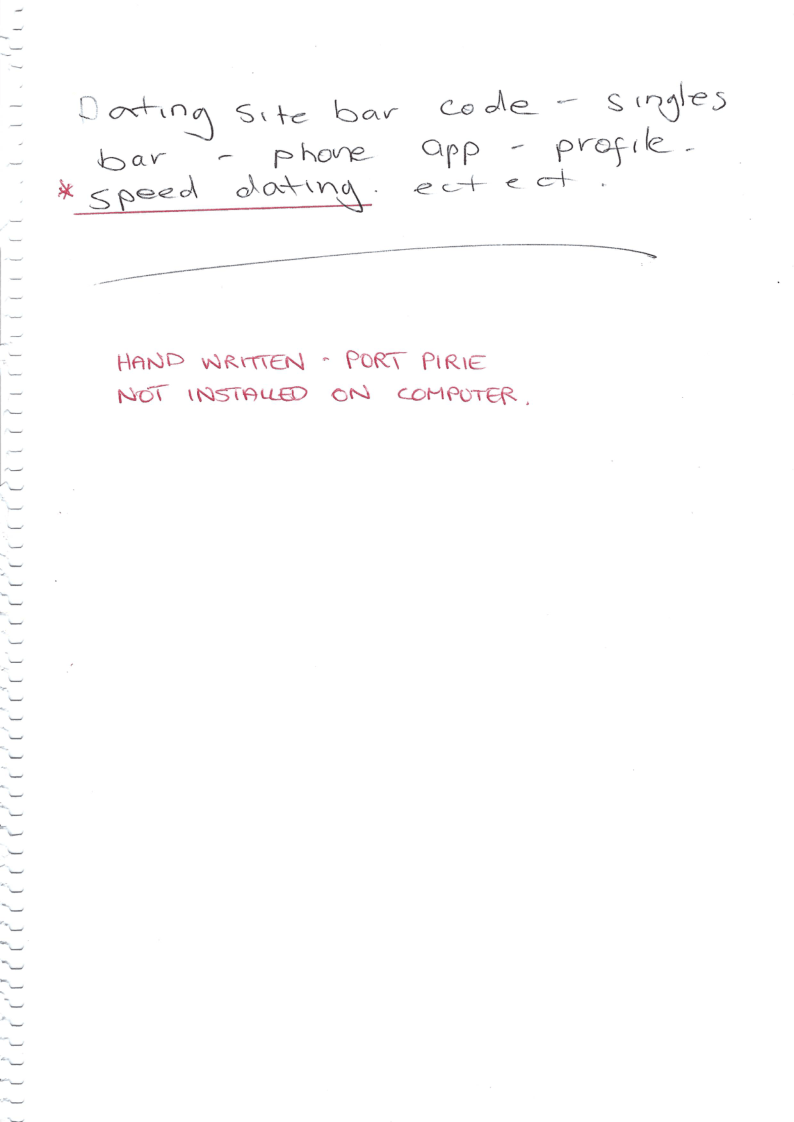 Dating site bar code - singles
bar - phone app - profile.
* speed dating. ect ect.
HAND WRITTEN - PORT PIRIE
NOT INSTALLED ON COMPUTER.